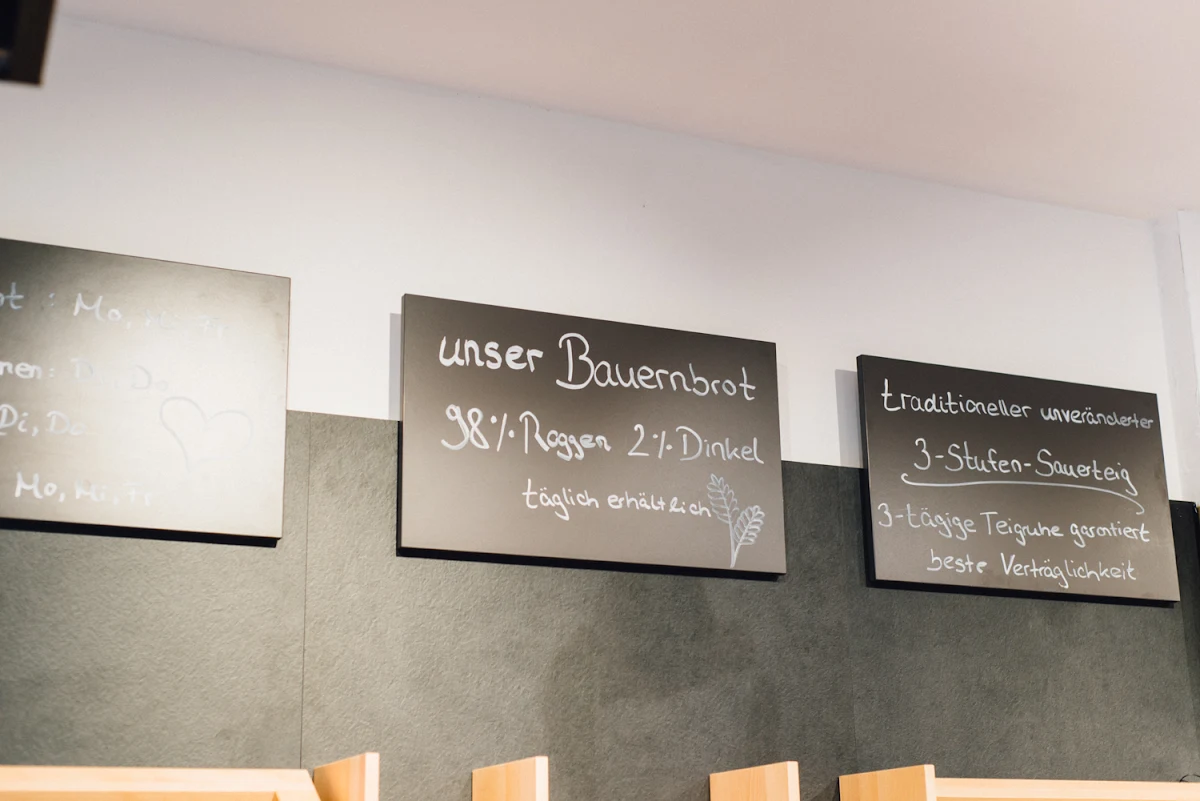 : Mo, Mi, Fr
Di, Do
Di, Do
Mo, Mi, Fr
unser Bauernbrot
98% Roggen 2% Dinkel
täglich erhältlich
traditioneller unveränderter
3-Stufen-Sauerteig
3-tägige Teigruhe garantiert
beste Verträglichkeit